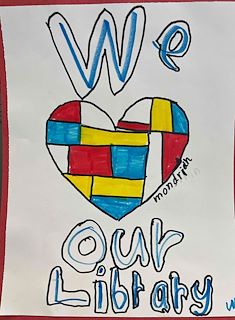 We
mondrian
Our
Library